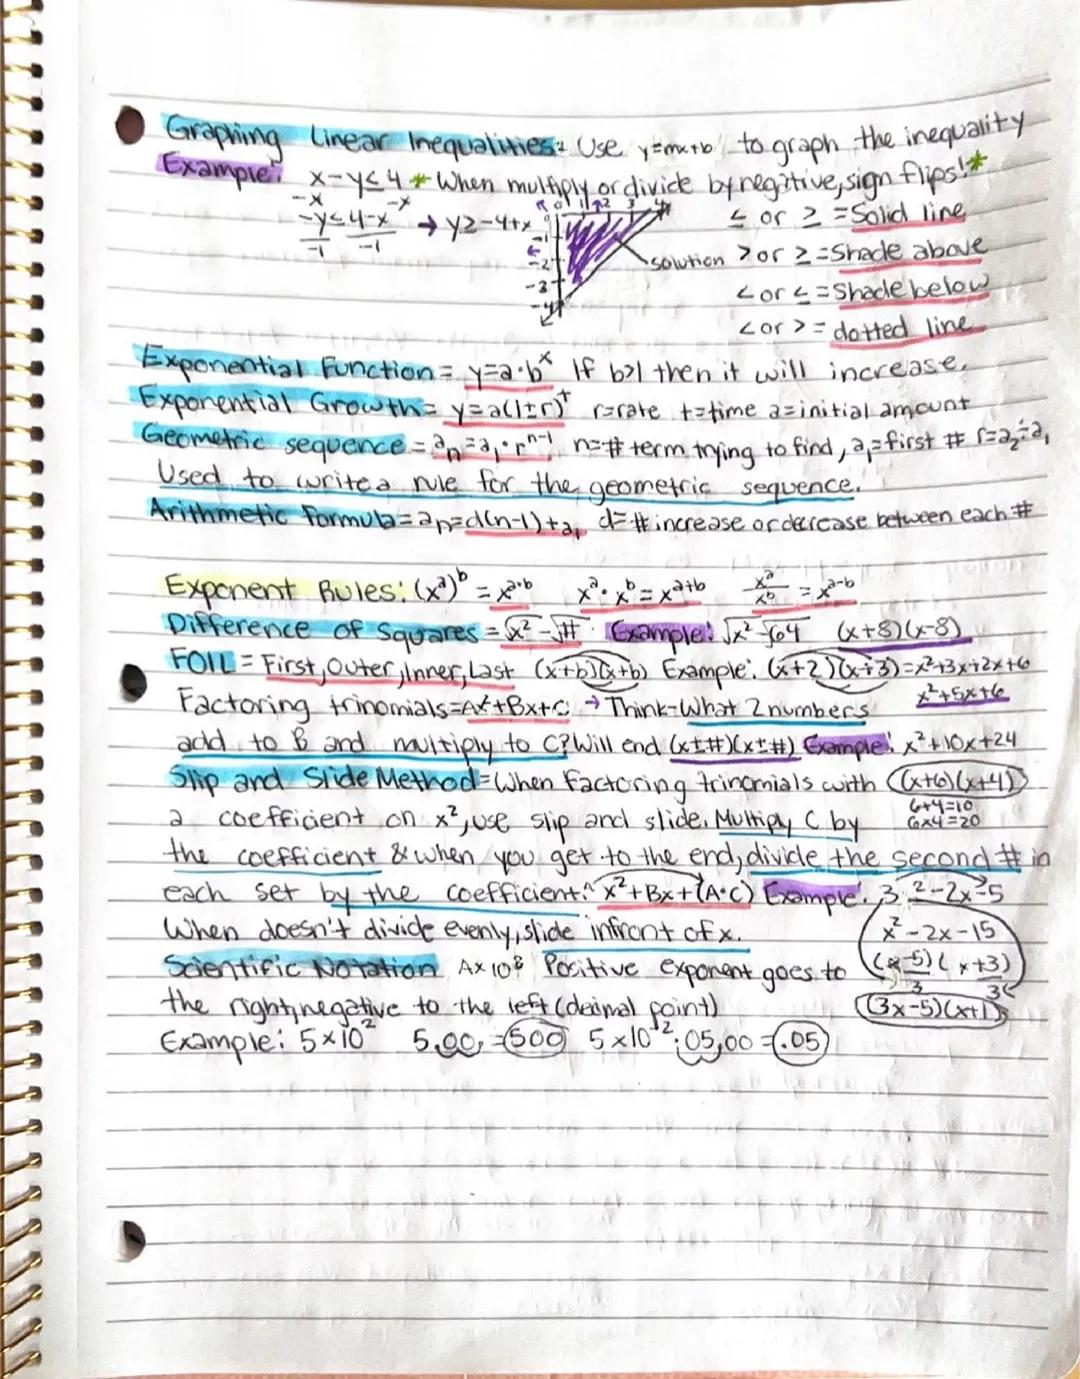 Graphing Linear Inequalities: Use y=mx+b to graph the inequality
Example: x-y≤4 *When multiply or divide by negative, sign flips!*
-x -x
-y≤4-x → y≥-4+x
-1 -1
0 1 2 3 4
0
-1
-2
-3
-4
solution
≤ or ≥ = Solid line
> or ≥ = Shade above
< or ≤ = Shade below
< or > = dotted line
Exponential Function = y=a·bˣ If b>1 then it will increase.
Exponential Growth= y=a(1±r)ᵗ r=rate t=time a=initial amount
Geometric sequence = aₙ=a₁·rⁿ⁻¹ n=# term trying to find, a₁=first # r=a₂÷a₁
Used to write a rule for the geometric sequence.
Arithmetic Formula= aₙ=d(n-1)+a₁ d=# increase or decrease between each #
Exponent Rules: (xᵃ)ᵇ = xᵃ·ᵇ xᵃ·xᵇ=xᵃ⁺ᵇ xᵃ/xᵇ = xᵃ⁻ᵇ
Difference of Squares = √x² - √# Example: √x² - √64 (x+8)(x-8)
FOIL = First, Outer, Inner, Last (x+b)(x+b) Example: (x+2)(x+3)=x²+3x+2x+6
x²+5x+6
Factoring trinomials=Ax²+Bx+C → Think-What 2 numbers
add to B and multiply to C? Will end (x±#)(x±#) Example: x²+10x+24
(x+6)(x+4)
6+4=10
6x4=20
Slip and Slide Method=When factoring trinomials with
a coefficient on x², use slip and slide. Multiply C by
the coefficient & when you get to the end, divide the second # in
each set by the coefficient. x²+Bx+(A·C) Example: 3 ²-2x-5
When doesn't divide evenly, slide infront of x.
x²-2x-15
(x-5)(x+3)
3 3
(3x-5)(x+1)
Scientific Notation Ax10ᴮ Positive exponent goes to
the right, negative to the left (decimal point)
Example: 5x10² 5.00. =500 5x10⁻²: .05,00 =.05